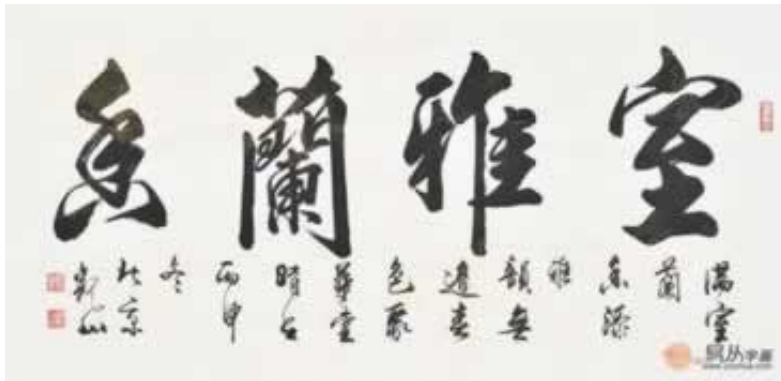 室雅蘭香
滿室
蘭
香添
雅
韻無
邊春
色聚
華堂
時在
丙申
冬
易从字画